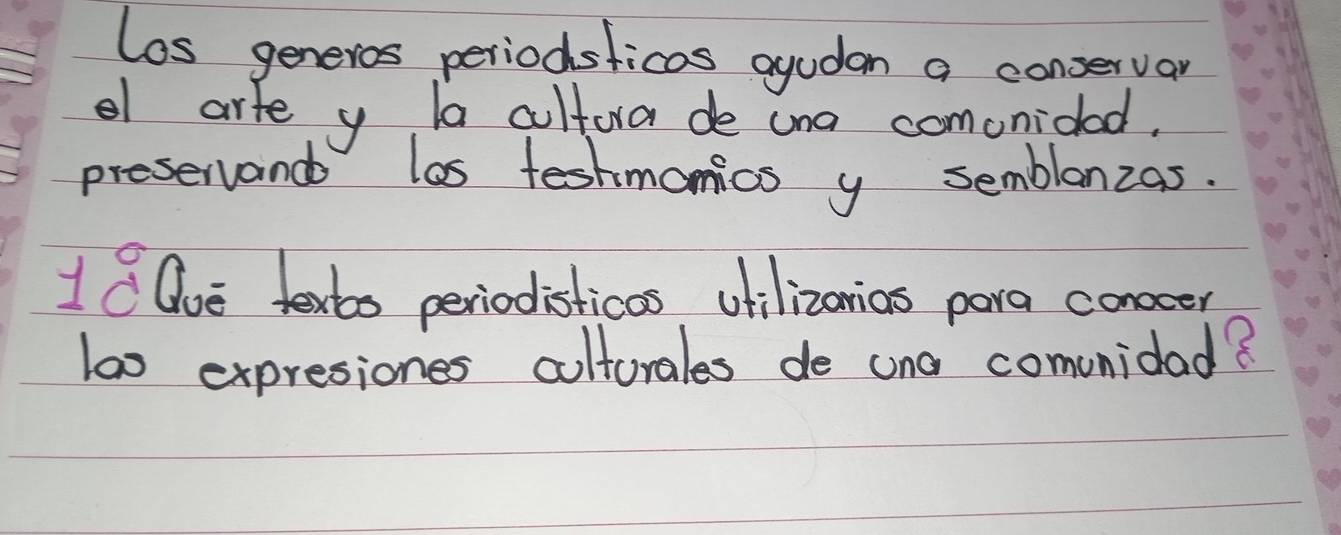 Los generos periodisticos ayudan a conservar
el arte y la cultura de una comunidad,
preservando los testimonios y semblanzas.
1 ¿Qué textos periodisticos utilizarias para conocer
las expresiones culturales de una comunidad?